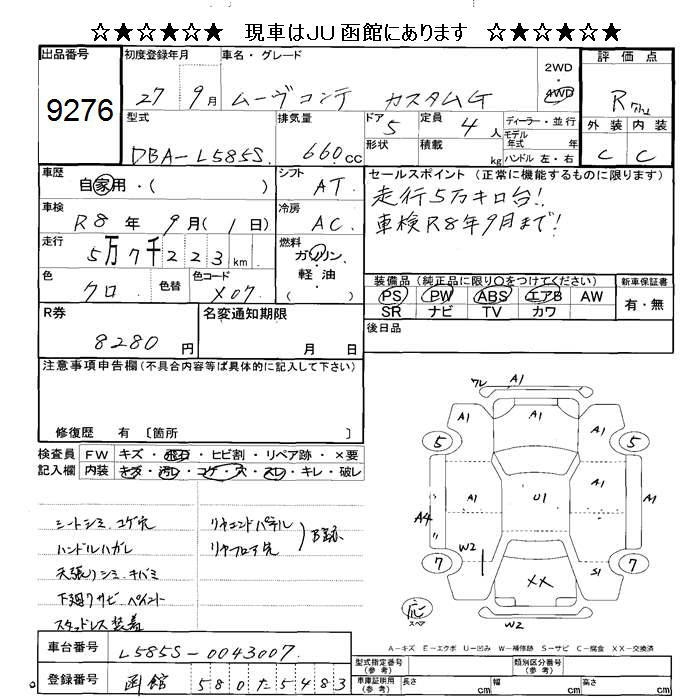 ☆★☆★☆★ 現車はJU函館にあります ☆★☆★☆★
出品番号
9276
初度登録年月
27 9月
車名・グレード
ムーヴコンテ カスタムG
2WD
AWD
評価点
R
外装 内装
C C
型式
DBA-L585S
排気量
660cc
ドア
5
形状
定員
4人
積載
kg
ディーラー・並行
モデル年式 年
ハンドル 左・右
車歴
自家用・( )
シフト
AT
セールスポイント(正常に機能するものに限ります)
走行5万キロ台!
車検R8年9月まで!
車検
R8年 9月(1日)
冷房
AC
走行
5万7千223km
燃料
ガソリン・軽油
( )
色
クロ
色替
色コード
X07
装備品(純正品に限り○をつけてください)
PS PW ABS エアB AW
SR ナビ TV カワ
新車保証書
有・無
R券
8280円
名変通知期限
月 日
後日品
注意事項申告欄(不具合内容等は具体的に記入して下さい)
修復歴 有〔箇所 〕
検査員記入欄
FW キズ・飛石・ヒビ割・リペア跡・×要
内装 キズ・汚レ・コゲ・穴・スレ・キレ・破レ
シートシミ、コゲ穴
ハンドルハガレ
天張りシミ、キバミ
下廻りサビ ペイント
スタッドレス装着
リヤエンドパネル
リヤフロア穴
A1
A1
A1 A1
5 5
A1 A1 U1 A1 A1
A4
W2
7 7
XX
S1
応
スペア
W2
A-キズ E-エクボ U-凹み W-補修跡 S-サビ C-腐食 XX-交換済
車台番号
L585S-0043007
登録番号
函館 580た5483
型式指定番号(参考)
類別区分番号(参考)
車庫証明用(参考)
長さ cm
幅 cm
高さ cm